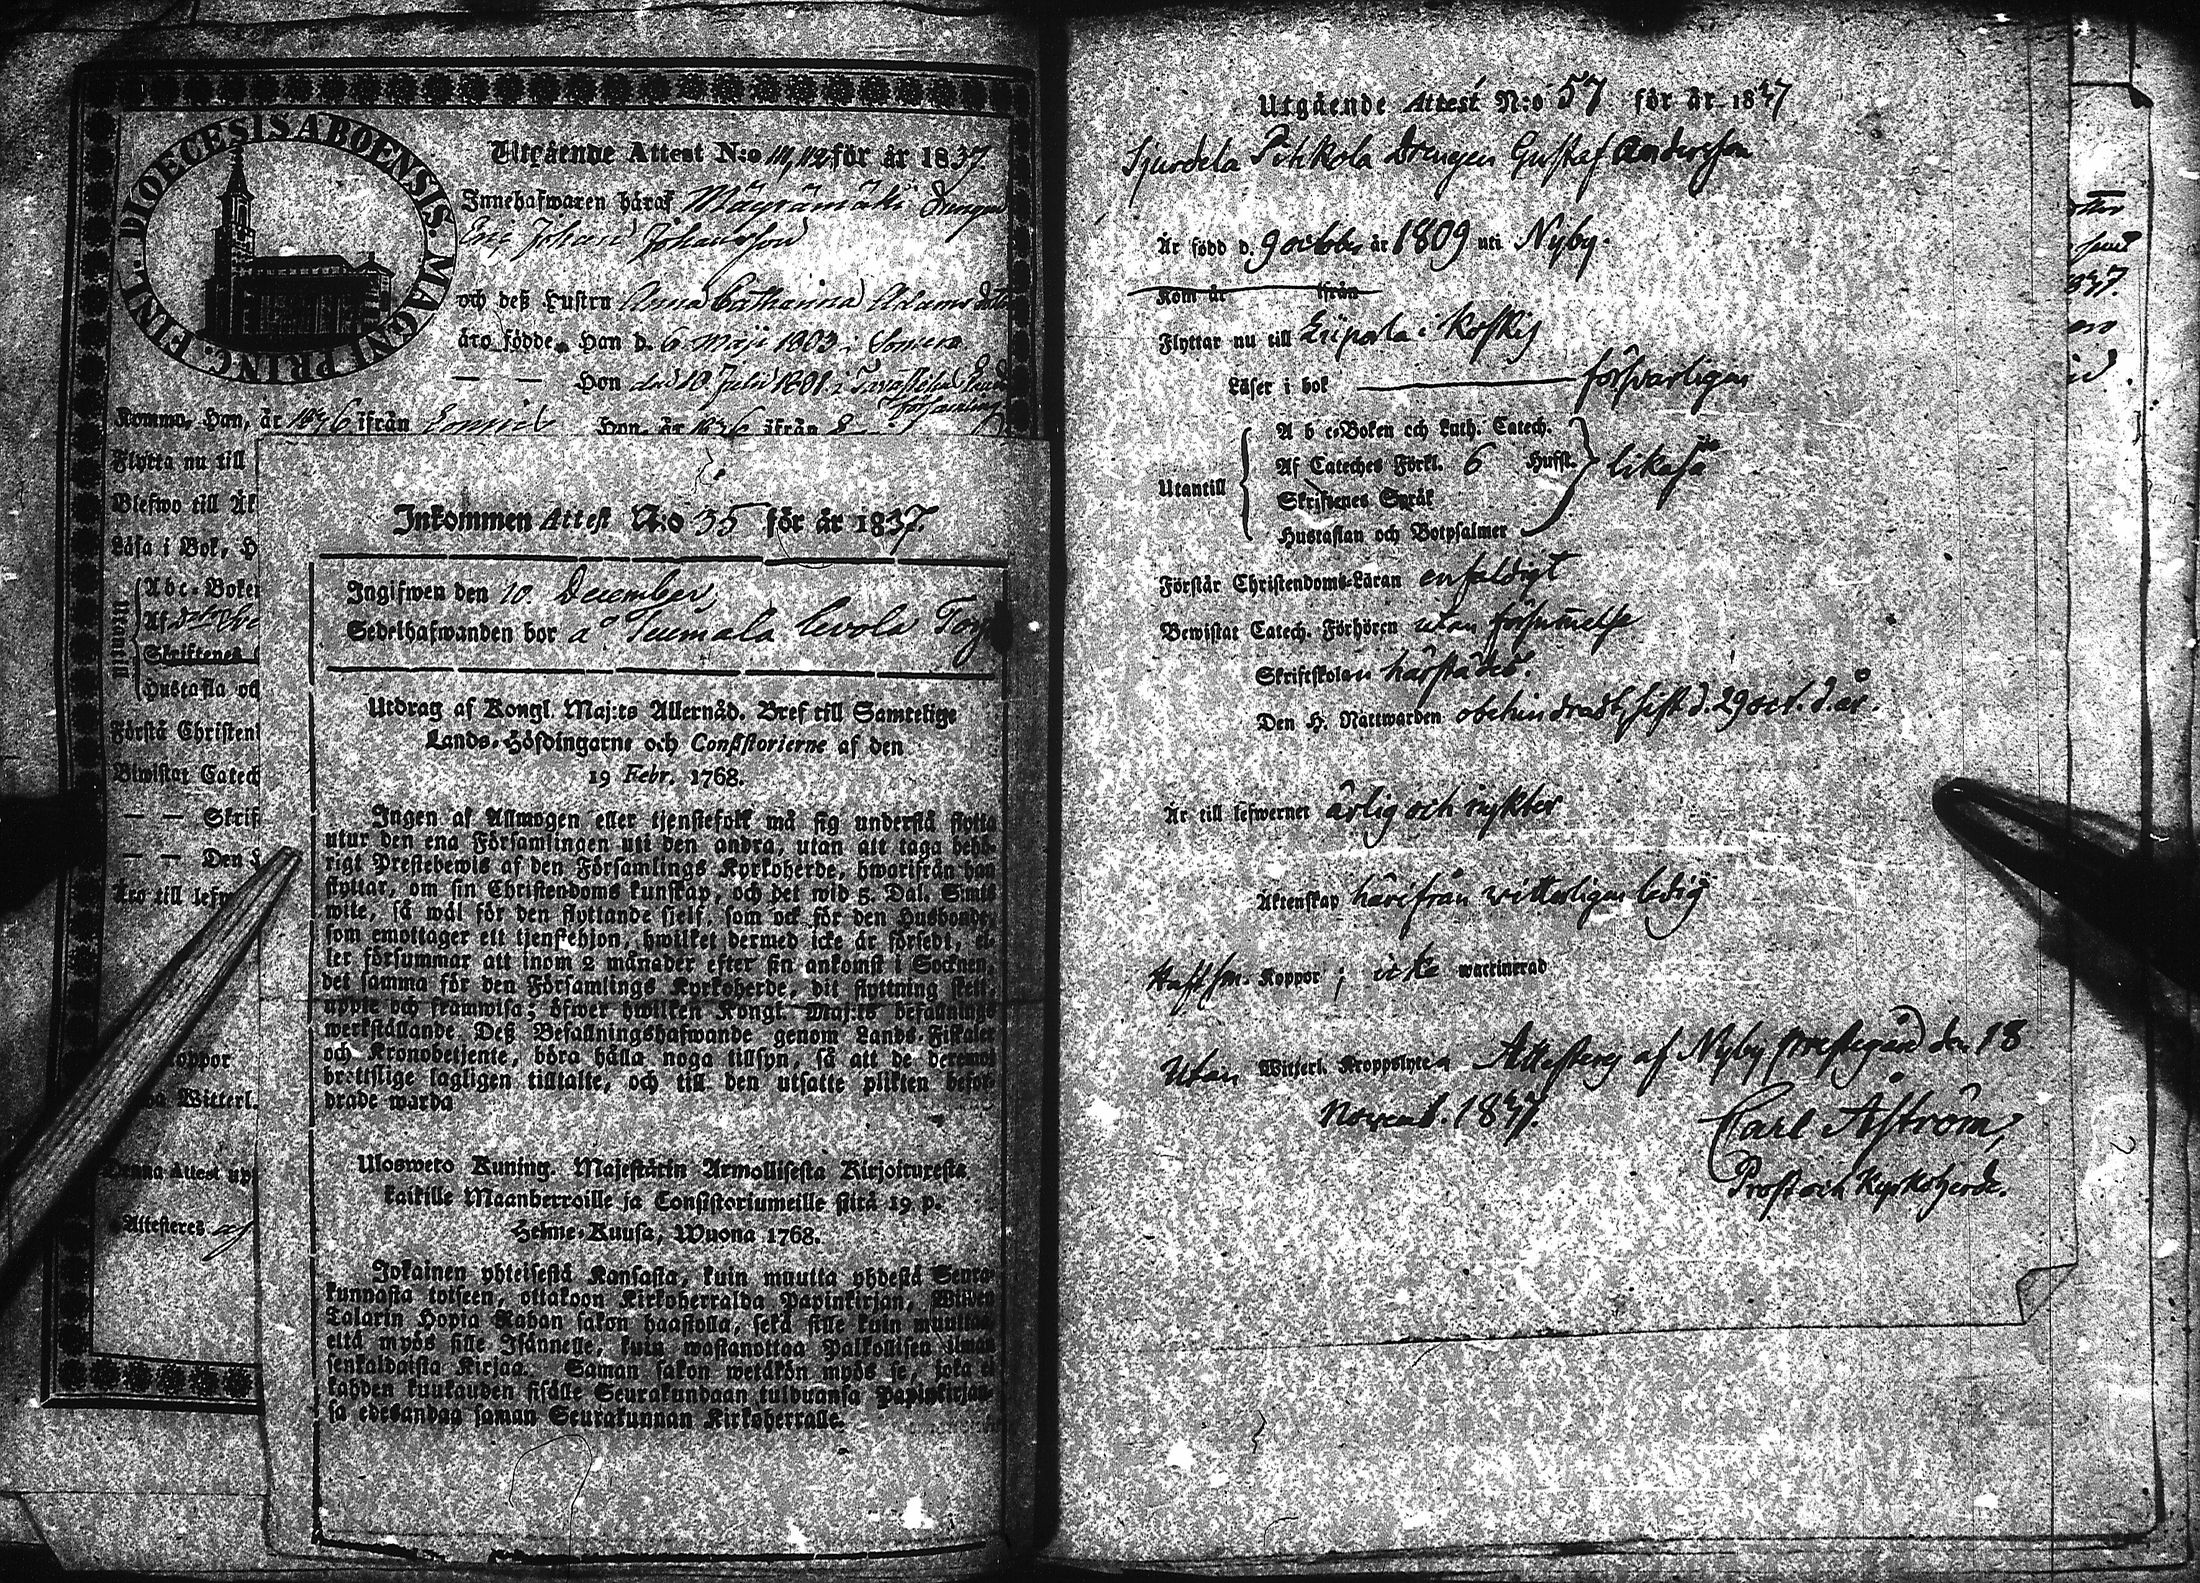 DIOECESIS ABOENSIS. MAGNI PRINC. FINL.
Utgående Attest N:o 111, 112 för år 1837.
Innehafwaren häraf Mäyrämäki Drengen
Eric Johan Johansson
och deß Hustru Anna Catharina Adamsdotter
äro födde, Han d. 6 Maji 1803 i Somero
— — Hon den 10 Julii 1801 i
Församling
Kommo, Han, år 1836 ifrån Hon, år 1836 ifrån
Flytta nu till
Blefwo till
Läsa i Bok, H
Utantill
Abc-Boken
Af
Skriftenes
Hustafla och
Förstå Christen
Biwistat Catech
— — Skrif
— — Den
Äro till lefw
Koppor
Witterl.
Denna Attest up
Attesteres af
Inkommen Attest N:o 35 för år 1837.
Ingifwen den 10. December,
Sedelhafwanden bor å Tuimala Uvola Torp
Utdrag af Kongl. Maj:ts Allernåd. Bref till Samtelige
Lands-Höfdingarne och Consistorierne af den
19 Febr. 1768.
Ingen af Allmogen eller tjenstefolk må sig understå flytta
utur den ena Församlingen uti den andra, utan att taga behö-
rigt Prestebewis af den Församlings Kyrkoherde, hwarifrån han
flyttar, om sin Christendoms kunskap, och det wid 5. Dal. S:mts
wite, så wäl för den flyttande sjelf, som ock för den Husbonde,
som emottager ett tjenstehjon, hwilket dermed icke är försedt, el-
ler försummar att inom 2 månader efter sin ankomst i Socknen,
det samma för den Församlings Kyrkoherde, dit flyttning sker,
uppte och framwisa; öfwer hwilken Kongl. Maj:ts befallnings
werkställande Deß Befallningshafwande genom Lands-Fiskaler
och Kronobetjente, böra hålla noga tillsyn, så att de deremot
brottslige lagligen tilltalte, och till den utsatte plikten befor-
drade warda
Ulosweto Kuning. Majestätin Armollisesta Kirjoituresta
kaikille Maanherroille ja Consistoriumeille siitä 19 p.
Helme-Kuusa, Wuona 1768.
Jokainen yhteisestä Kansasta, kuin muutta yhdestä Seura-
kunnasta toiseen, ottakoon Kirkoherralda Papinkirjan, Wiiden
Talarin Hopia Rahan sakon haastolla, sekä sille kuin muuttaa
että myös sille Isännelle, kuin wastanottaa Palkollisen ilman
senkaldaista Kirjaa. Saman sakon wetäkön myös se, joka ei
kahden kuukauden sisälle Seurakundaan tulduansa Papinkirjan-
sa edesandaa saman Seurakunnan Kirkoherralle.
Utgående Attest N:o 57 för år 1837
Sjurdela Pihkola Drengen Gustaf Andersson
Är född d. 9 October år 1809 uti Nyby.
Kom år ifrån
Flyttar nu till Liipola i Koskis
Läser i bok försvarligen
Utantill
A b c-Boken och Luth. Catech.
Af Cateches Förkl. 6 Hufst. likaså
Skriftenes Språk
Hustaflan och Botpsalmer
Förstår Christendoms-Läran enfaldigt
Bewistat Catech. Förhören utan försummelse
Skriftskolan härstädes.
Den H. Nattwarden obehindradt, sist d. 29 oct. d. år.
Är till lefwernet ärlig och nykter
Äktenskap härifrån witterligen ledig
Haft sm. Koppor; icke waccinerad
Utan Witterl. Kroppslyten Attesteras af Nyby prestegård den 13
Novemb. 1837.
Carl Åström,
Prost och Kyrkoherde.